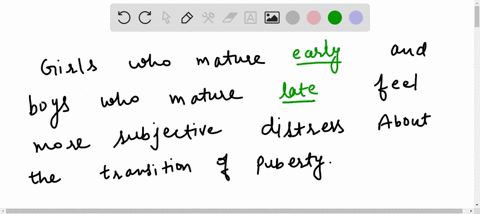 Girls who mature early and
boys who mature late feel
more subjective distress About
the transition of Puberty.